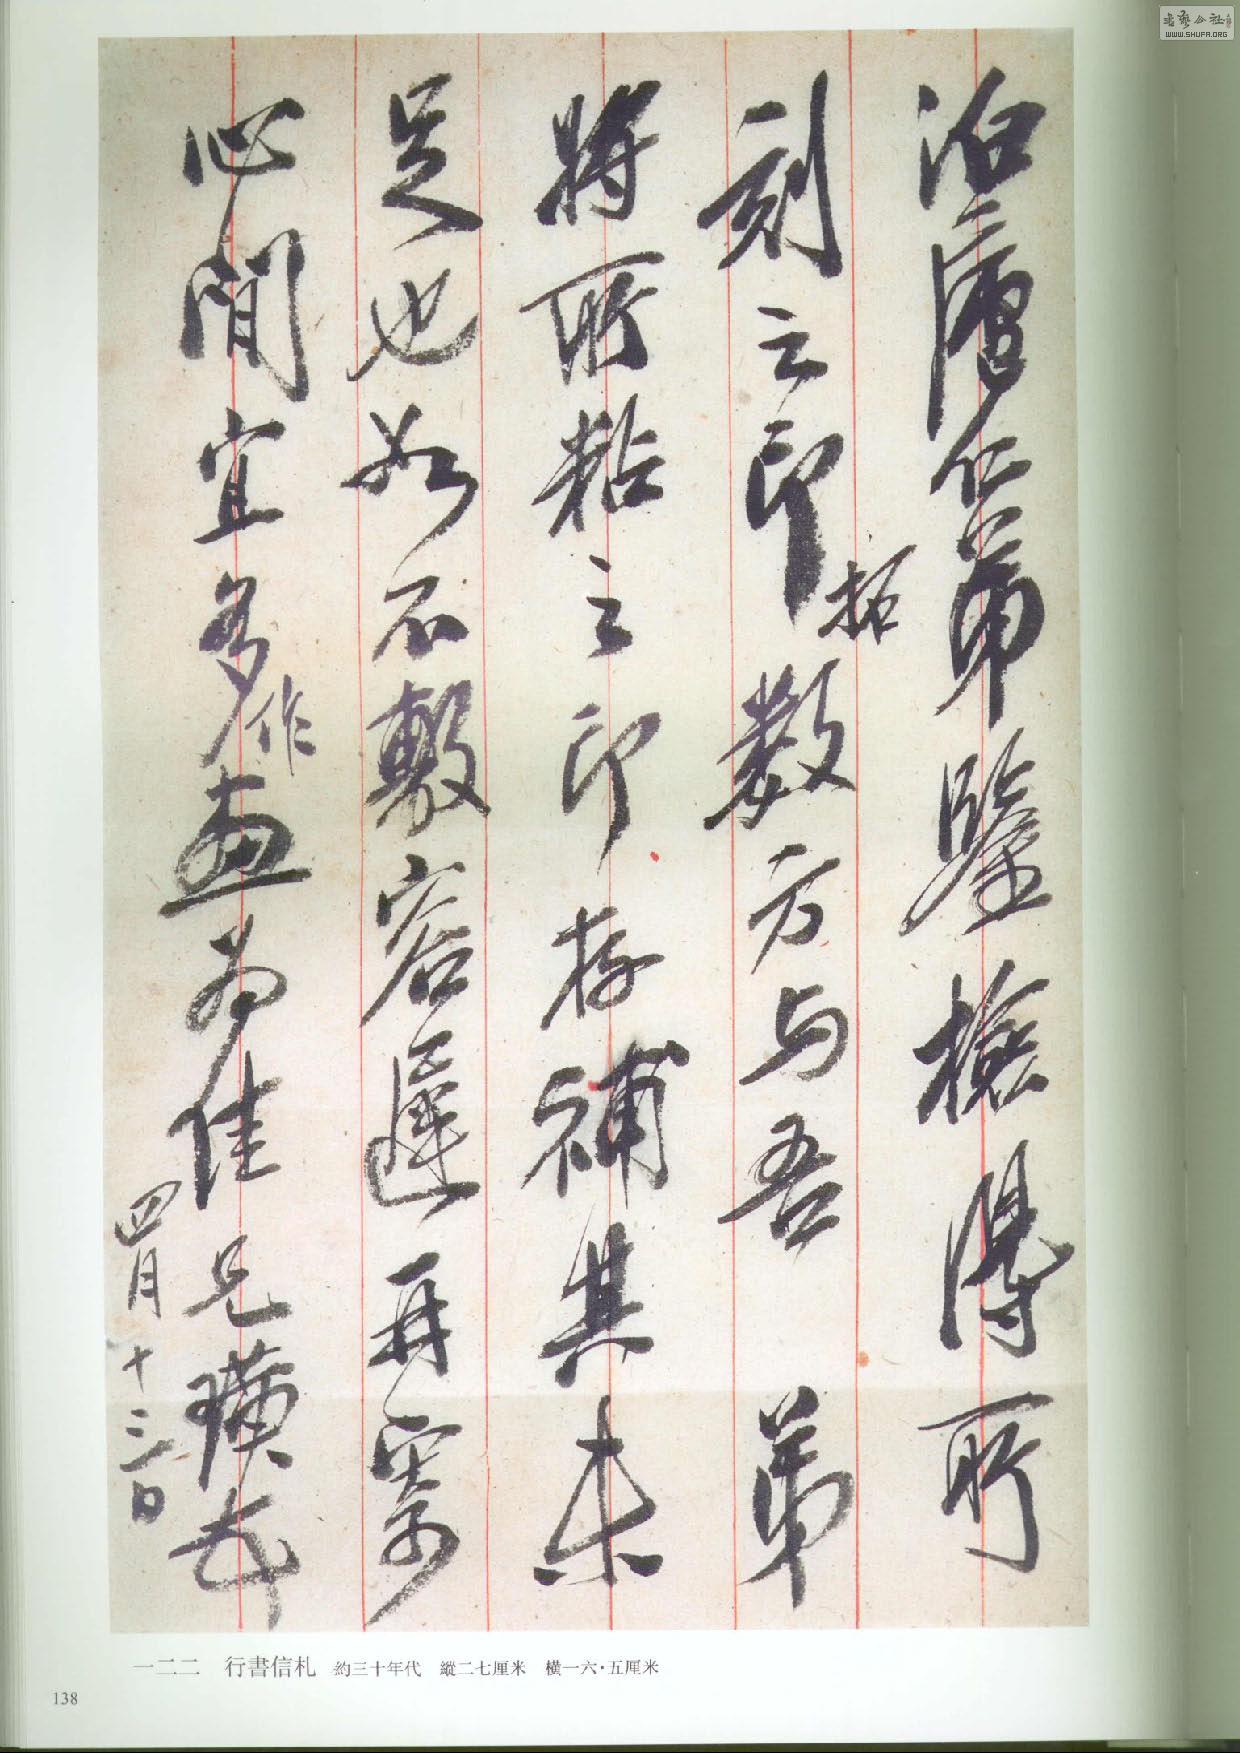 泊廬仁弟鑒檢得所
刻之印拓數方与吾弟
將所粘之印存補其未
足也如不敷容遲再寄
心閒宜多作畫為佳兄璜
四月十三日
一二二 行書信札 約三十年代 縱二七厘米 橫一六·五厘米
138
书艺公社
WWW.SHUFA.ORG